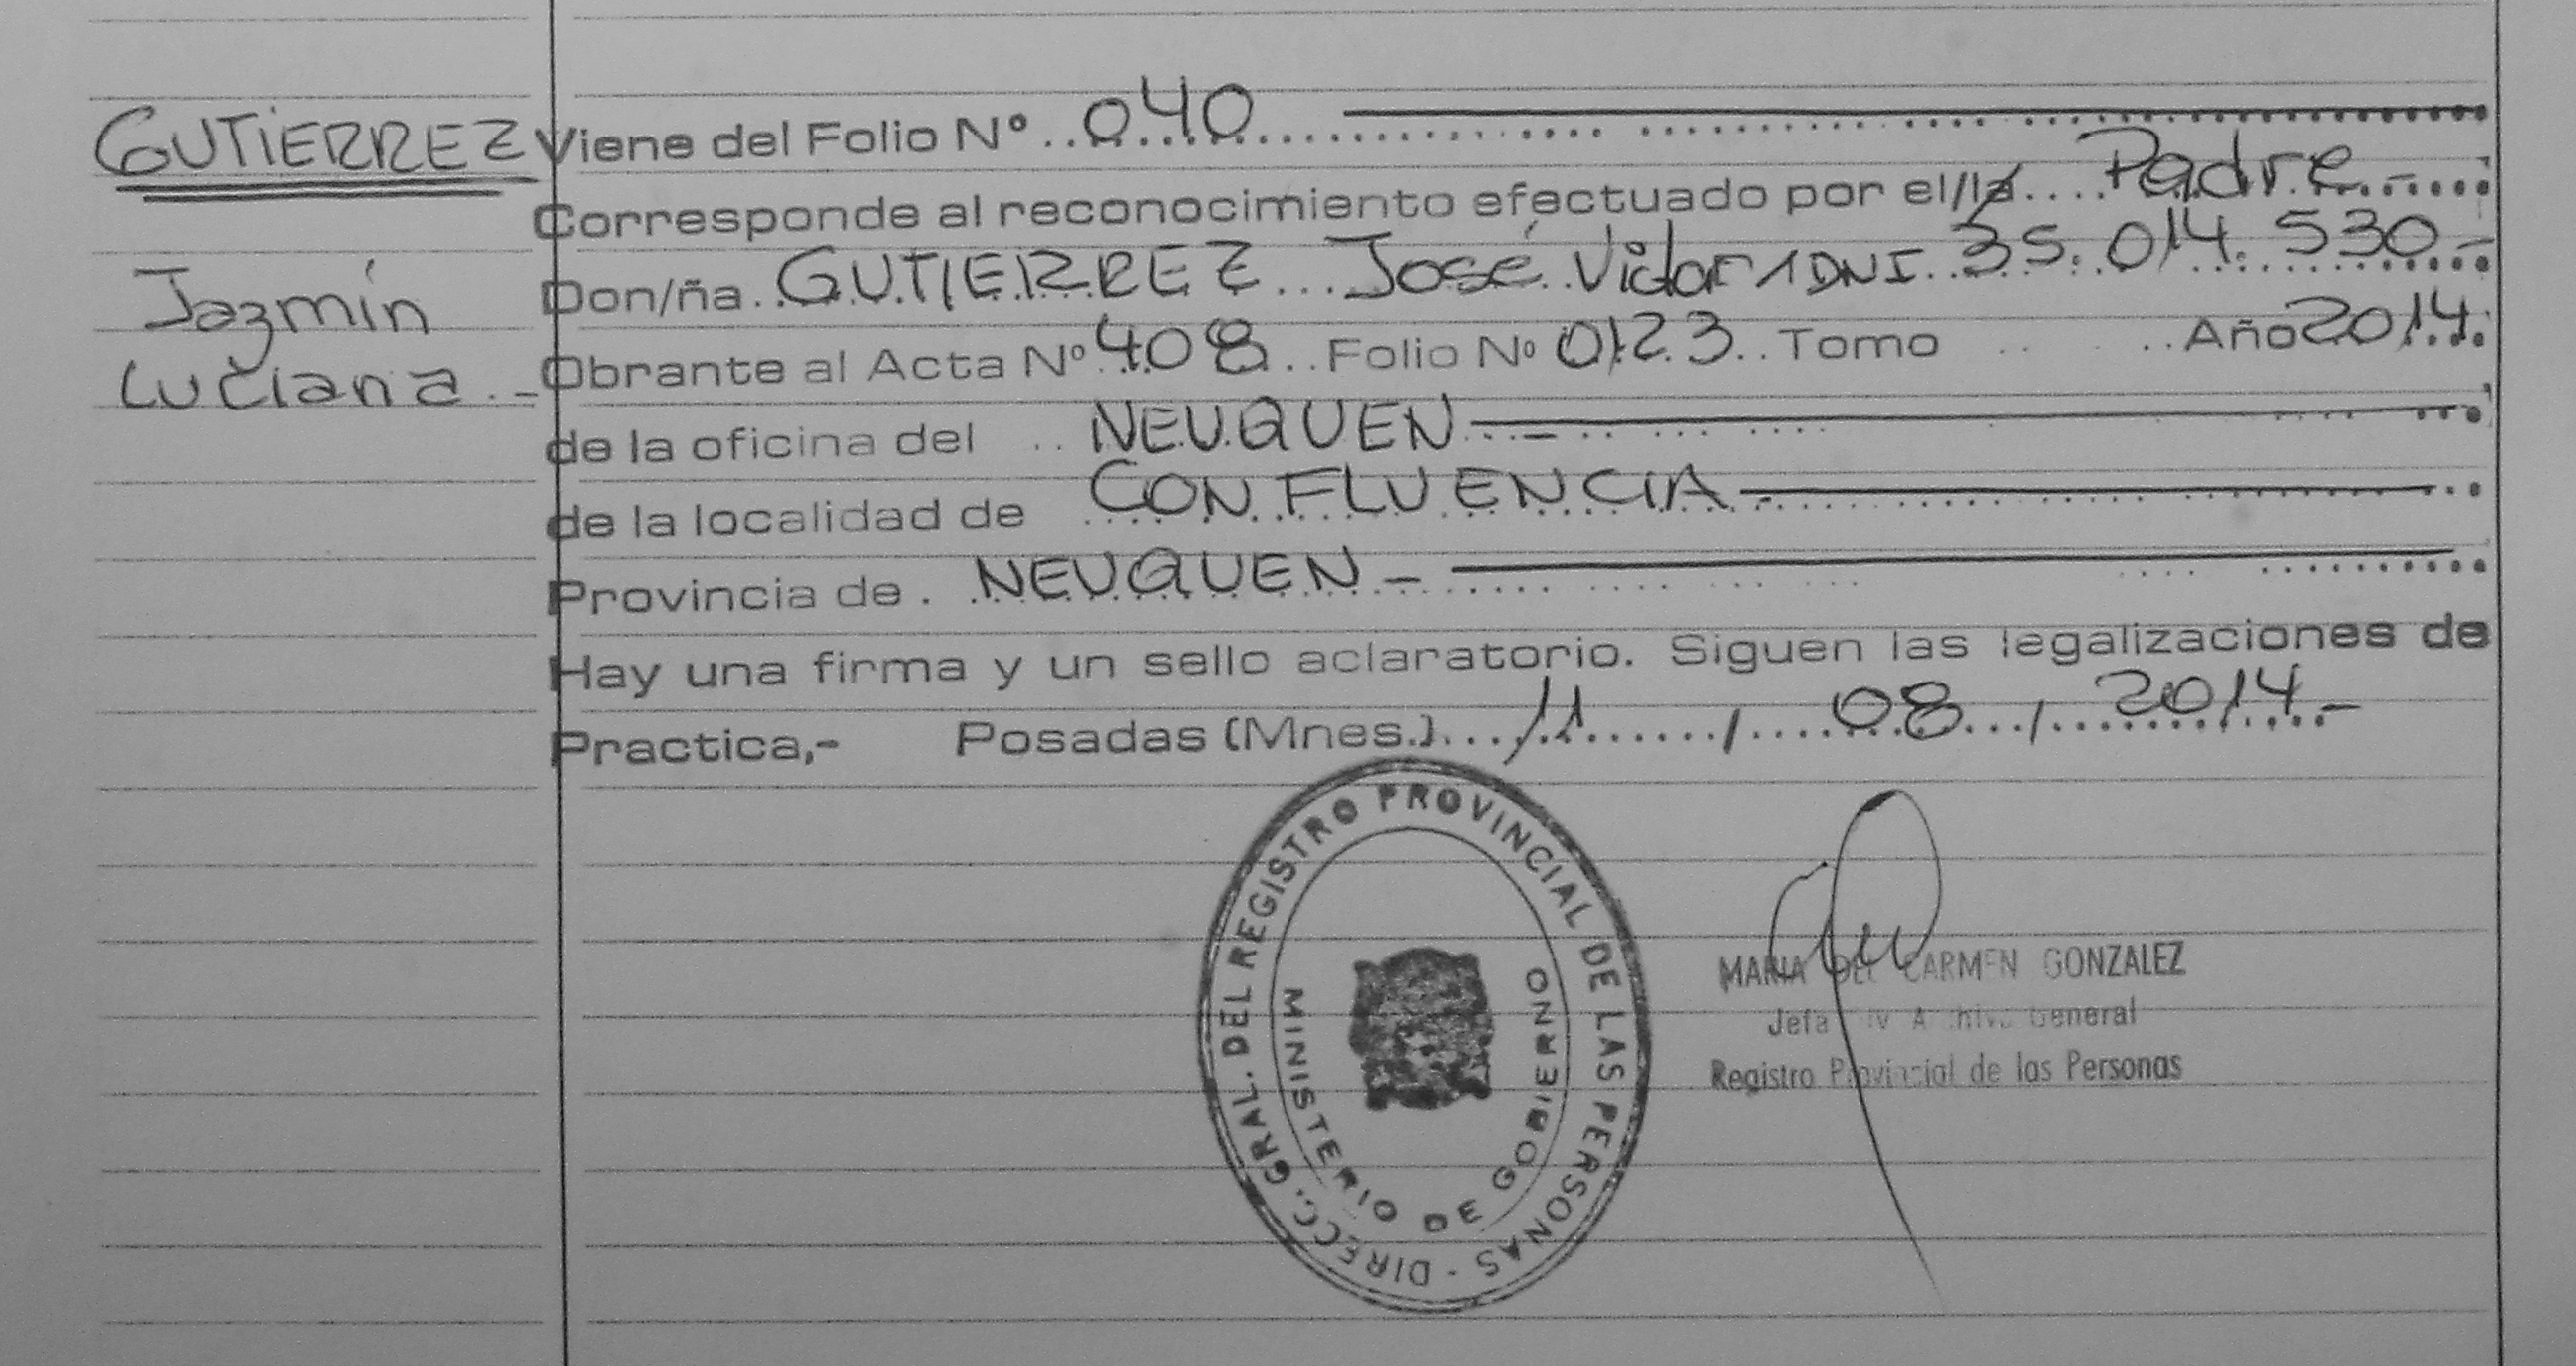 GUTIERREZ
Jazmín
Luciana.-
Viene del Folio Nº 040
Corresponde al reconocimiento efectuado por el/la Padre.-
Don/ña GUTIERREZ José Víctor / DNI 35.014.530.-
Obrante al Acta Nº 408 Folio Nº 0123 Tomo Año 2014.
de la oficina del NEUQUEN.-
de la localidad de CONFLUENCIA.-
Provincia de NEUQUEN.-
Hay una firma y un sello aclaratorio. Siguen las legalizaciones de
Practica,- Posadas (Mnes.) 11 / 08 / 2014.-
DIRECC. GRAL. DEL REGISTRO PROVINCIAL DE LAS PERSONAS -
MINISTERIO DE GOBIERNO
MARIA DEL CARMEN GONZALEZ
Jefa Div Archivo General
Registro Provincial de las Personas